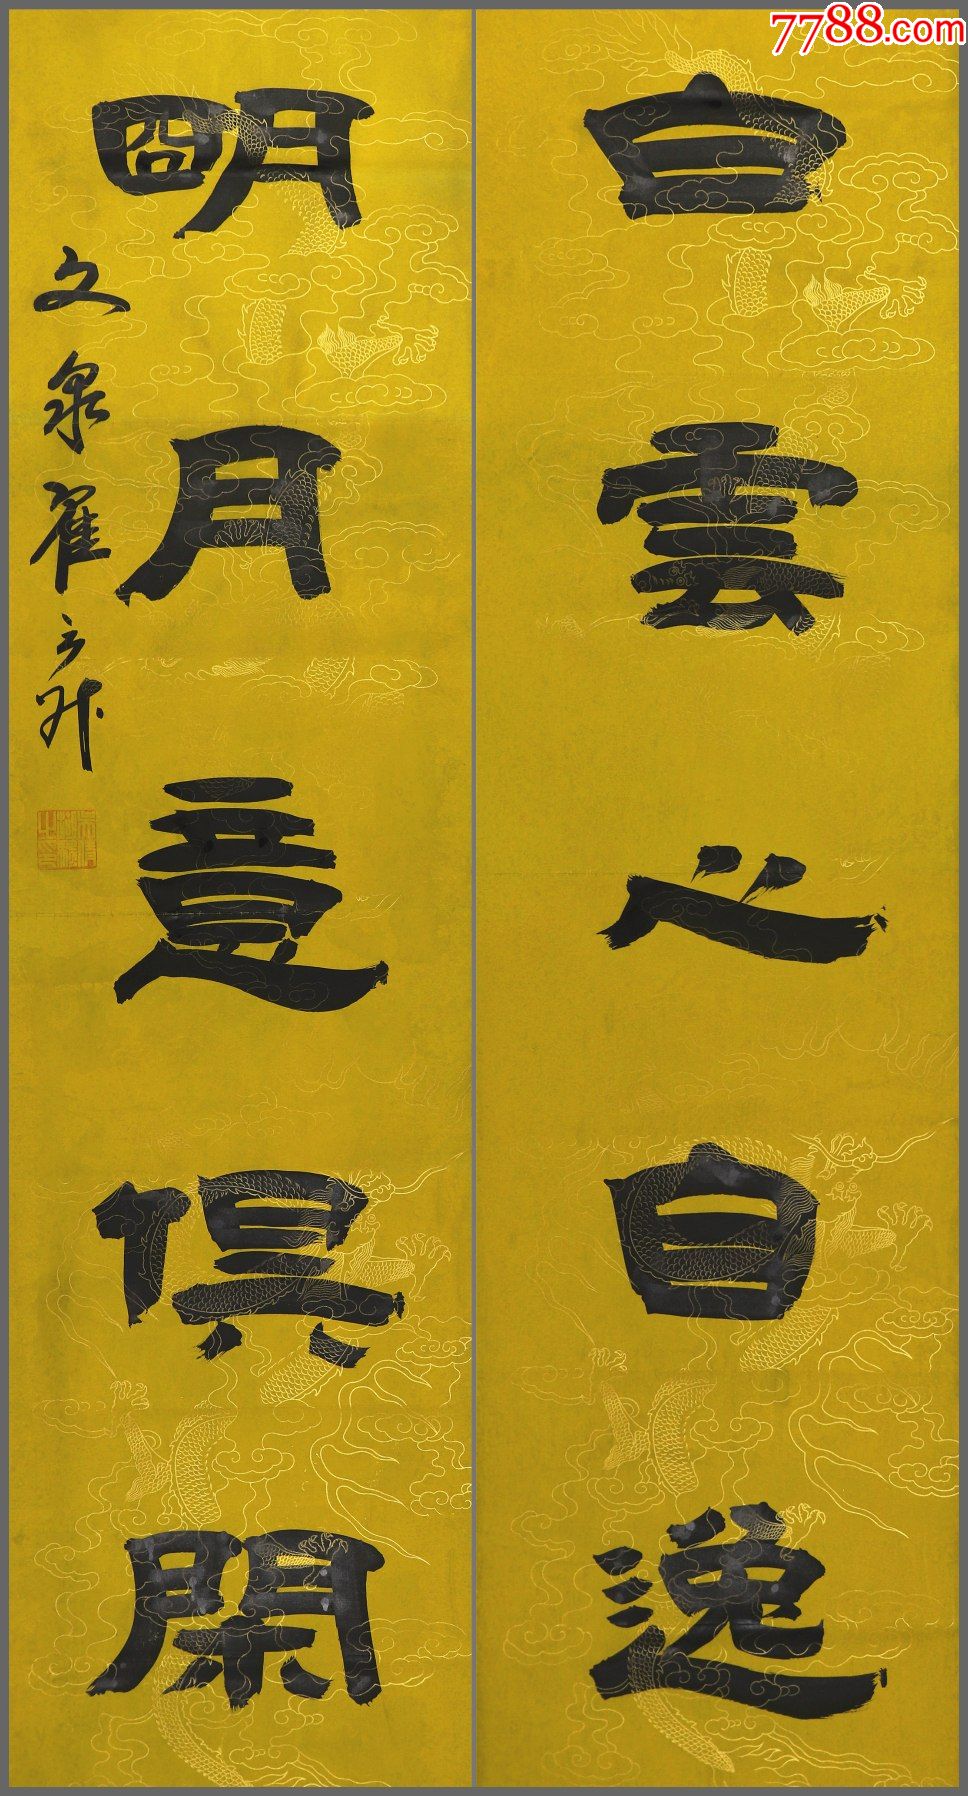 7788.com
白雲心自逸
明月意俱閑
文泉翟云升